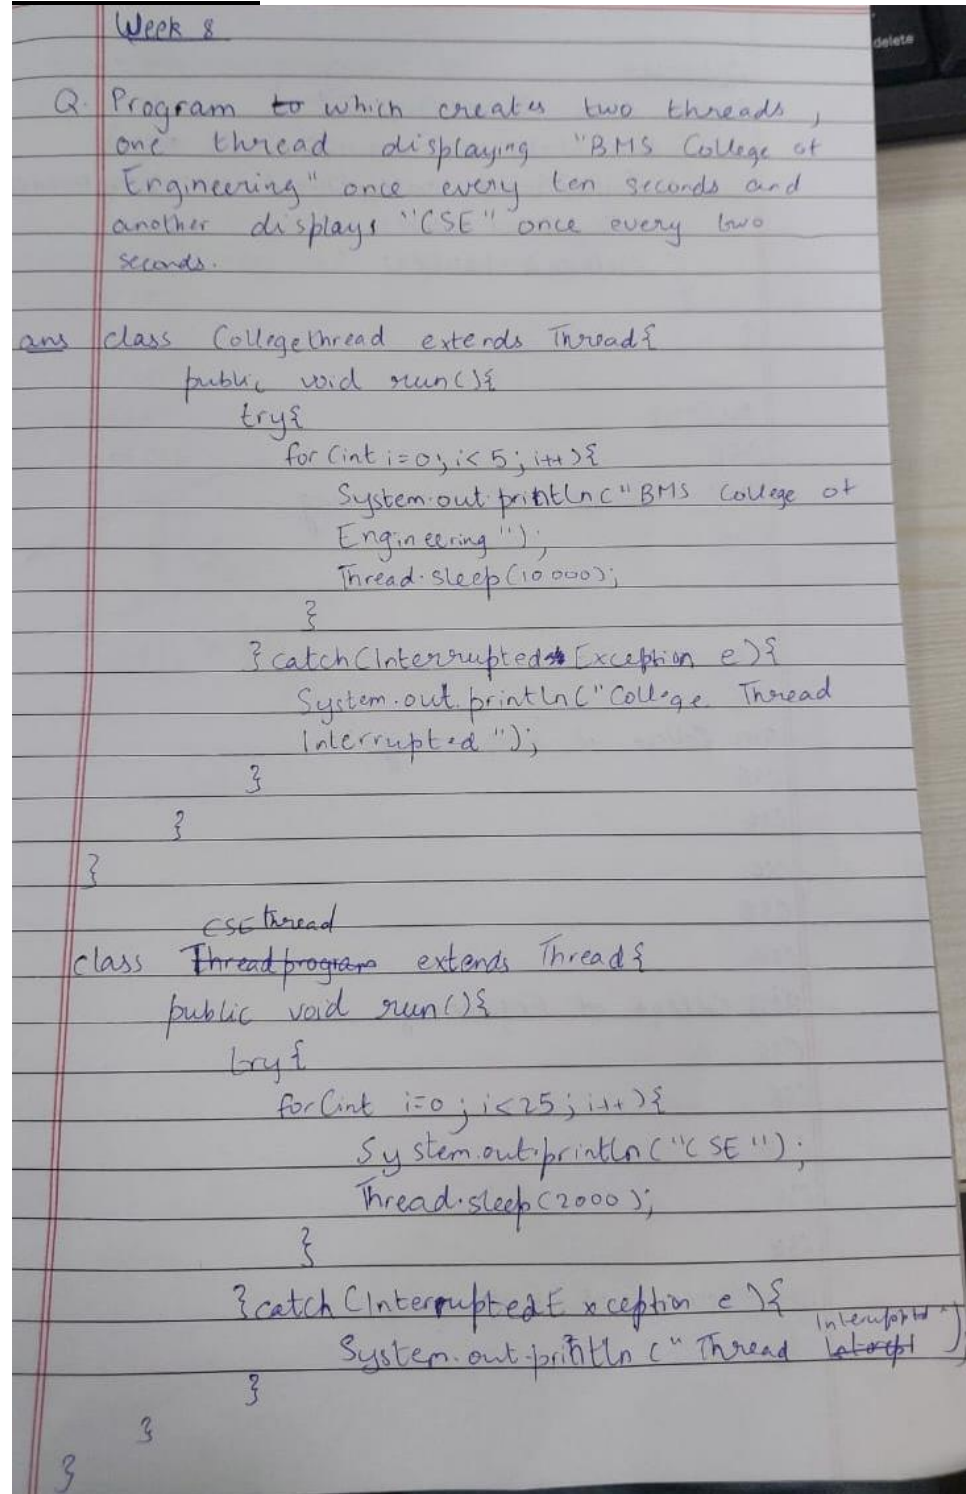 Week 8
delete
Q. Program to which creates two threads,
one thread displaying "BMS College of
Engineering" once every ten seconds and
another displays "CSE" once every two
seconds.
ans class Collegethread extends Thread{
public void run(){
try{
for (int i=0; i<5; i++){
System.out.println("BMS College of
Engineering");
Thread.sleep(10000);
}
}catch(InterruptedException e){
System.out.println("College Thread
Interrupted");
}
}
}
CSEthread
class Threadprogram extends Thread{
public void run(){
try{
for(int i=0; i<25; i++){
System.out.println("CSE");
Thread.sleep(2000);
}
}catch(InterruptedException e){
Interrupted")
System.out.println("Thread ;
}
}
}